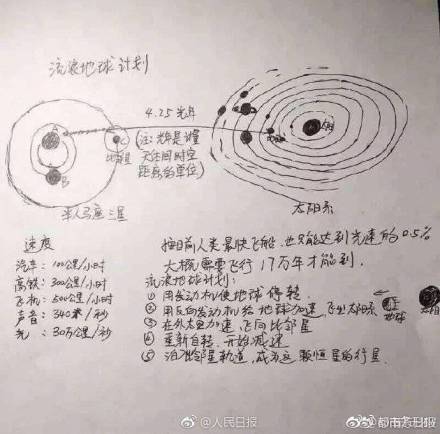 流浪地球计划
4.25光年
A
C
(注:光年是计量
天体间时空
距离的单位)
比邻星
B
太阳
地球
半人马座三星
太阳系
速度
汽车:100公里/小时
高铁:300公里/小时
飞机:500公里/小时
声音:340米/秒
光:30万公里/秒
按目前人类最快飞船,也只能达到光速的0.5%
大概需要飞行17万年才能到.
流浪地球计划:
① 用发动机使地球停转.
② 用反向发动机给地球加速 飞出太阳系
③ 在外太空加速,飞向比邻星
④ 重新自转,开始减速
⑤ 泊入比邻星轨道,成为这颗恒星的行星.
地球
@人民日报
@都市念王